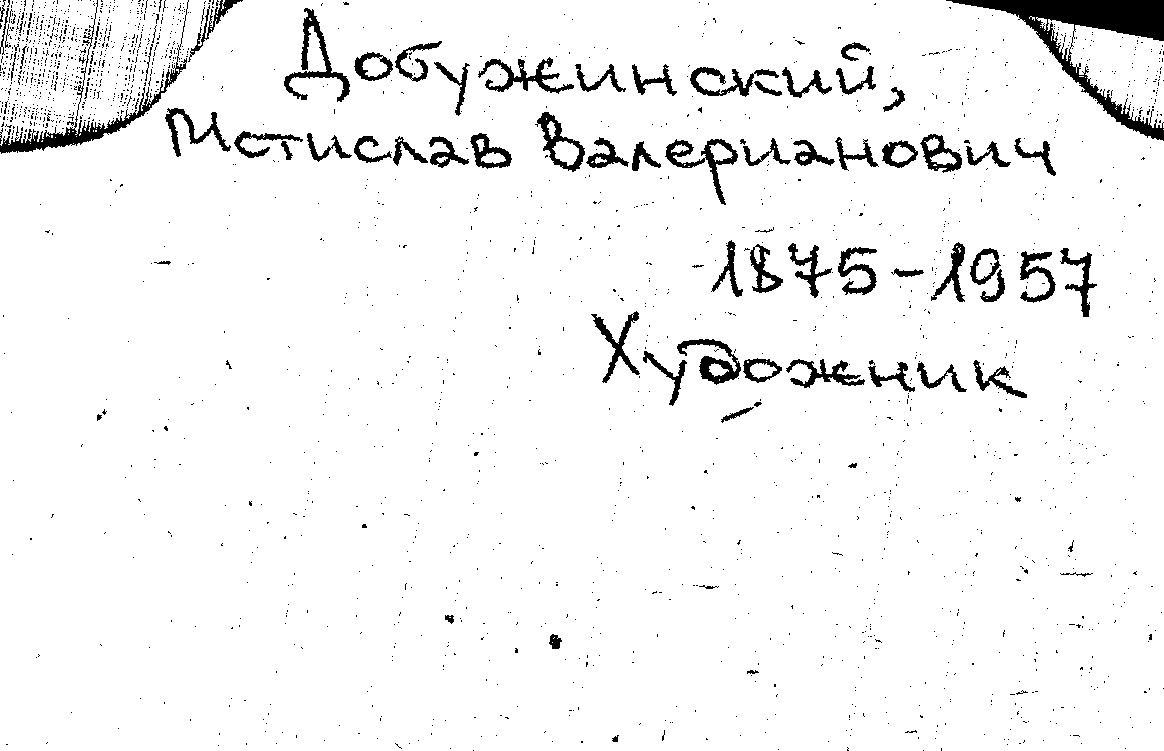 Добужинский,
Мстислав Валерианович
1875-1957
Художник